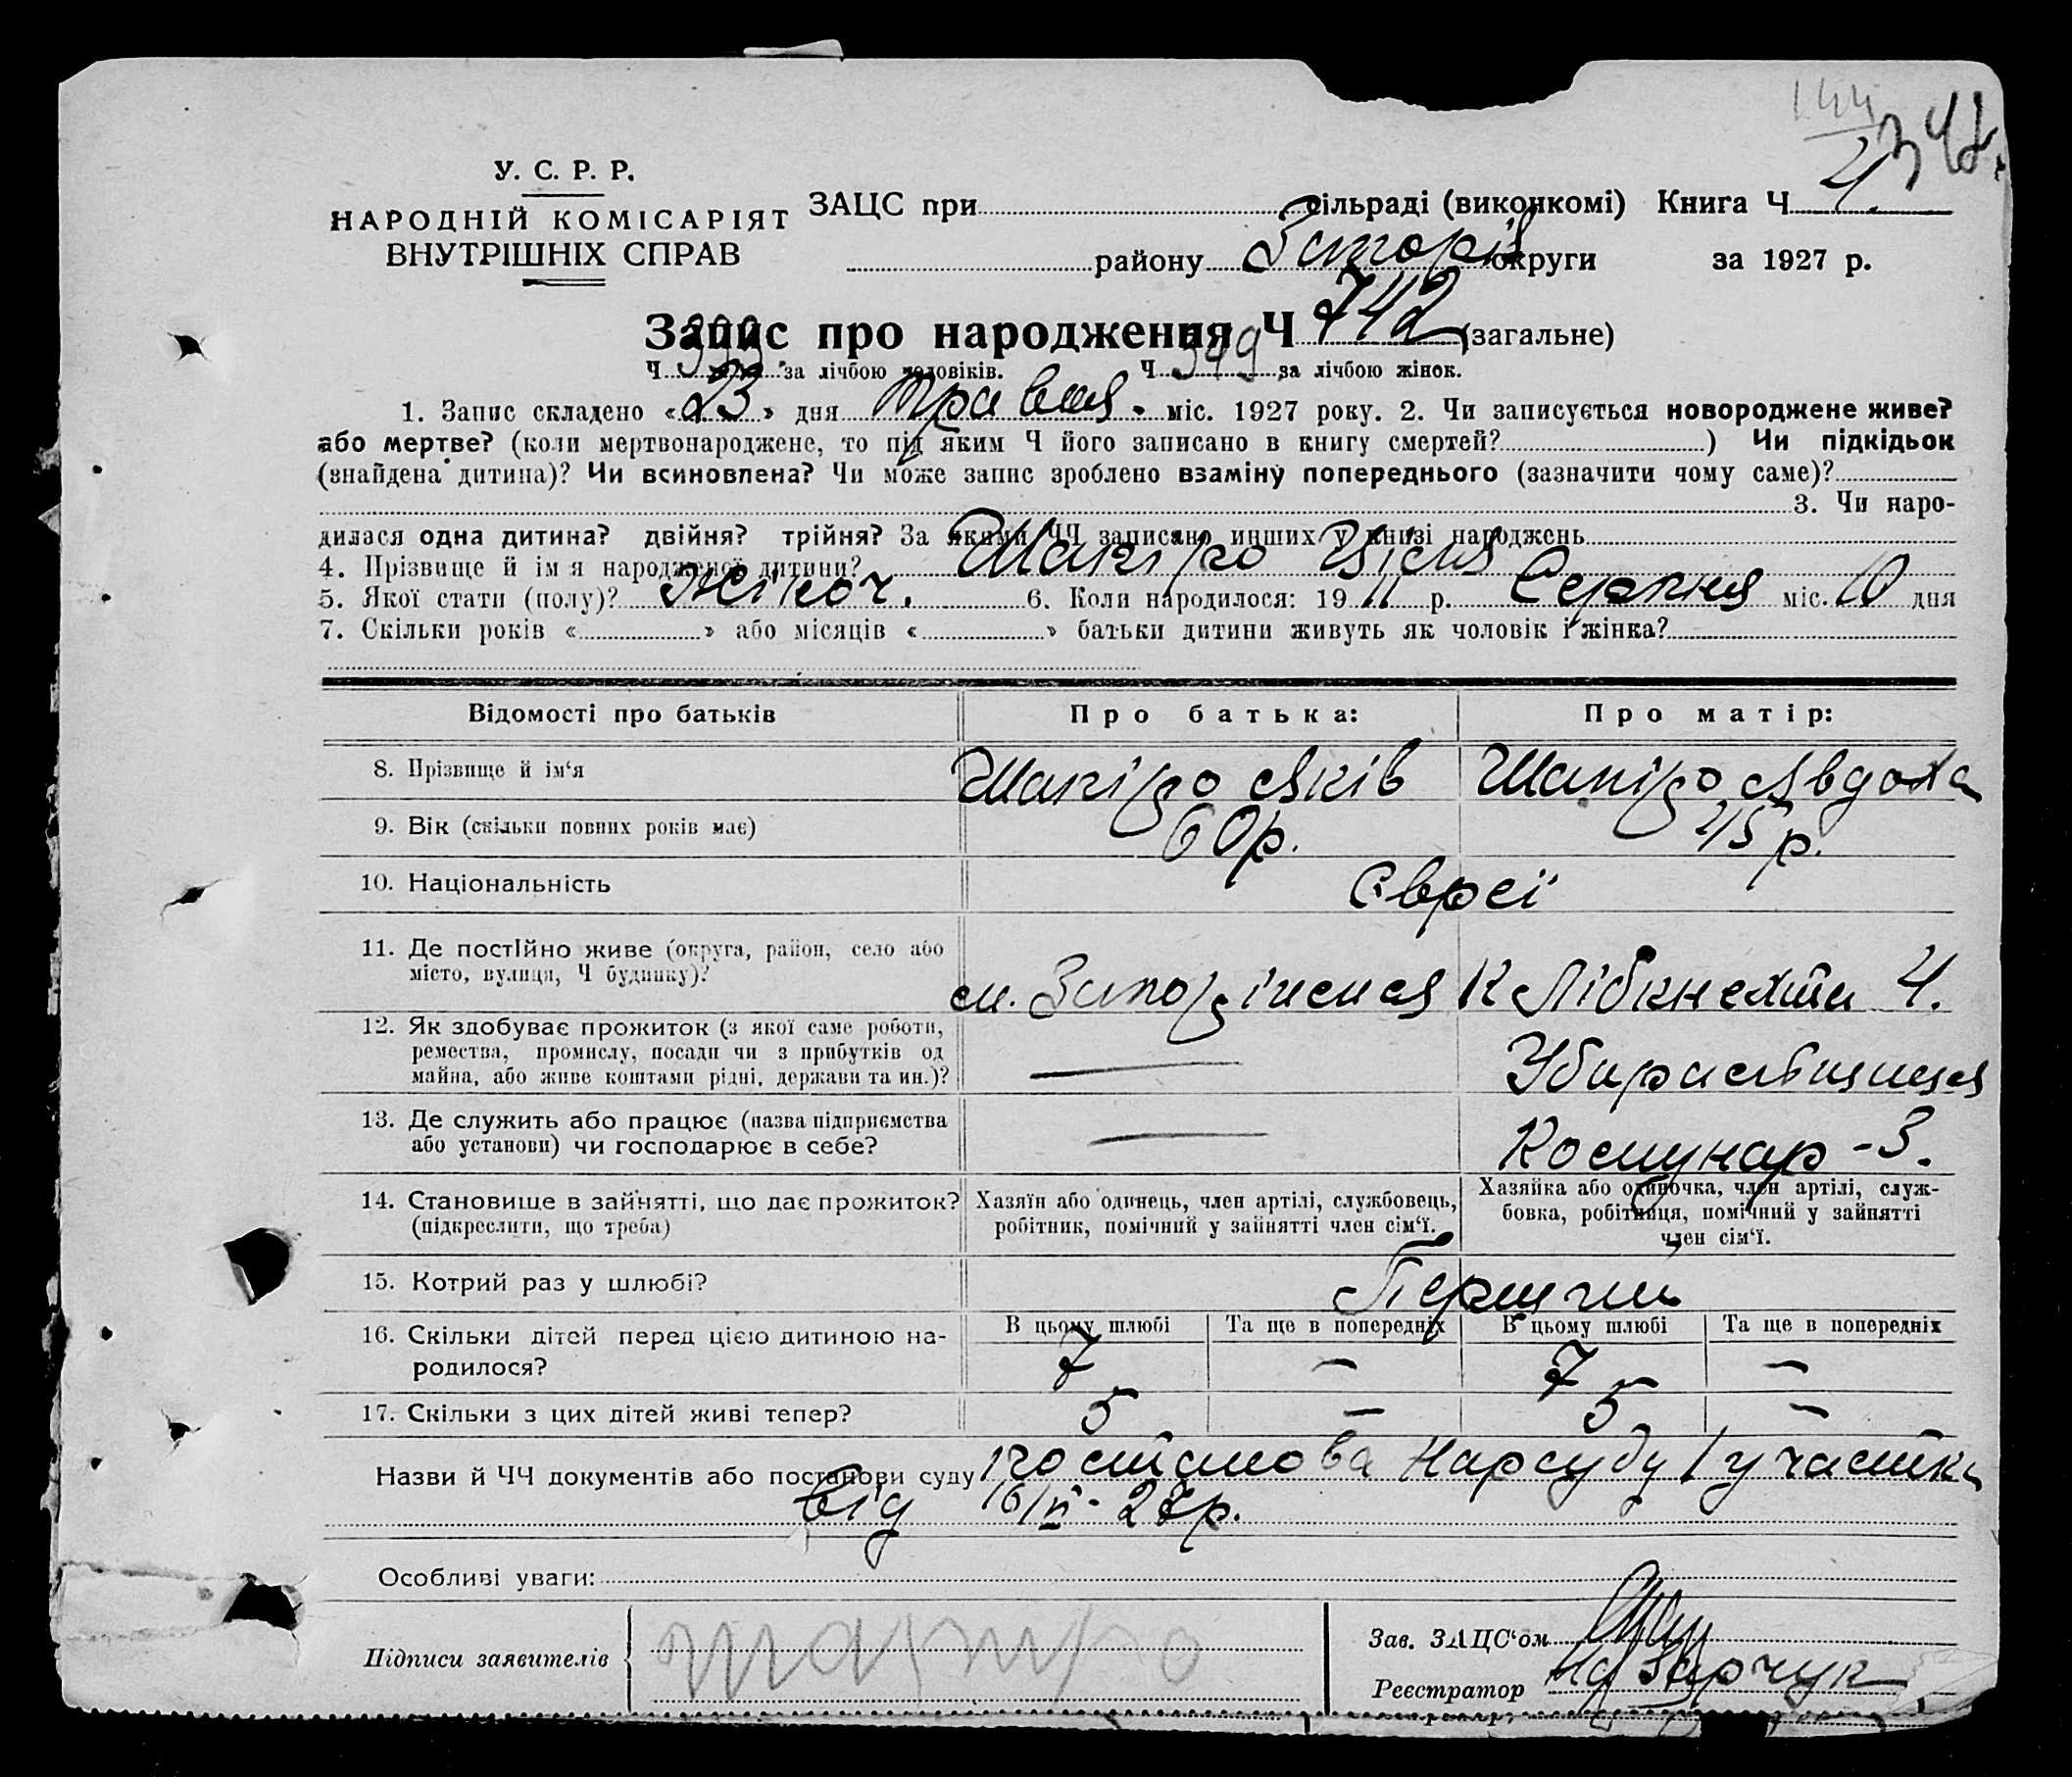 У. С. Р. Р.
НАРОДНІЙ КОМІСАРІЯТ
ВНУТРІШНІХ СПРАВ
342
ЗАЦС при сільраді (виконкомі) Книга Ч 4
району Запоріз округи за 1927 р.
Запис про народження Ч 742 (загальне)
Ч 393 за лічбою чоловіків. Ч 349 за лічбою жінок.
1. Запис складено «23» дня Травня міс. 1927 року. 2. Чи записується новороджене живе?
або мертве? (коли мертвонароджене, то під яким Ч його записано в книгу смертей? ) Чи підкідьок
(знайдена дитина)? Чи всиновлена? Чи може запис зроблено взаміну попереднього (зазначити чому саме)?
3. Чи наро-
дилася одна дитина? двійня? трійня? За якими ЧЧ записано инших у книзі народжень
4. Прізвище й ім'я народженої дитини? Шапіро
5. Якої стати (полу)? Жіноч. 6. Коли народилося: 1911 р. Серпня міс. 10 дня
7. Скільки років « » або місяців « » батьки дитини живуть як чоловік і жінка?
Відомості про батьків Про батька: Про матір:
8. Прізвище й ім'я Шапіро Яків Шапіро Явдоха
9. Вік (скільки повних років має) 60 р. 45 р.
10. Національність Євреї
11. Де постійно живе (округа, район, село або
місто, вулиця, Ч будинку)? м. Запоріжжя К Лібкнехта 4.
12. Як здобуває прожиток (з якої саме роботи,
ремества, промислу, посади чи з прибутків од
майна, або живе коштами рідні, держави та ин.)? — Убиральщиця
13. Де служить або працює (назва підприємства
або установи) чи господарює в себе? — Комунар - 3.
14. Становище в зайнятті, що дає прожиток?
(підкреслити, що треба)
Хазяїн або одинець, член артілі, службовець,
робітник, помічний у зайнятті член сім'ї.
Хазяйка або одиночка, член артілі, служ-
бовка, робітниця, помічний у зайнятті
член сім'ї.
15. Котрий раз у шлюбі? Перший
В цьому шлюбі Та ще в попередніх В цьому шлюбі Та ще в попередніх
16. Скільки дітей перед цією дитиною на-
родилося? 7 — 7 —
17. Скільки з цих дітей живі тепер? 5 — 5 —
Назви й ЧЧ документів або постанови суду постанова Нарсуду 1 участка
від 16/
27р.
Особливі уваги:
Підписи заявителів
Зав. ЗАЦС'ом
Реєстратор